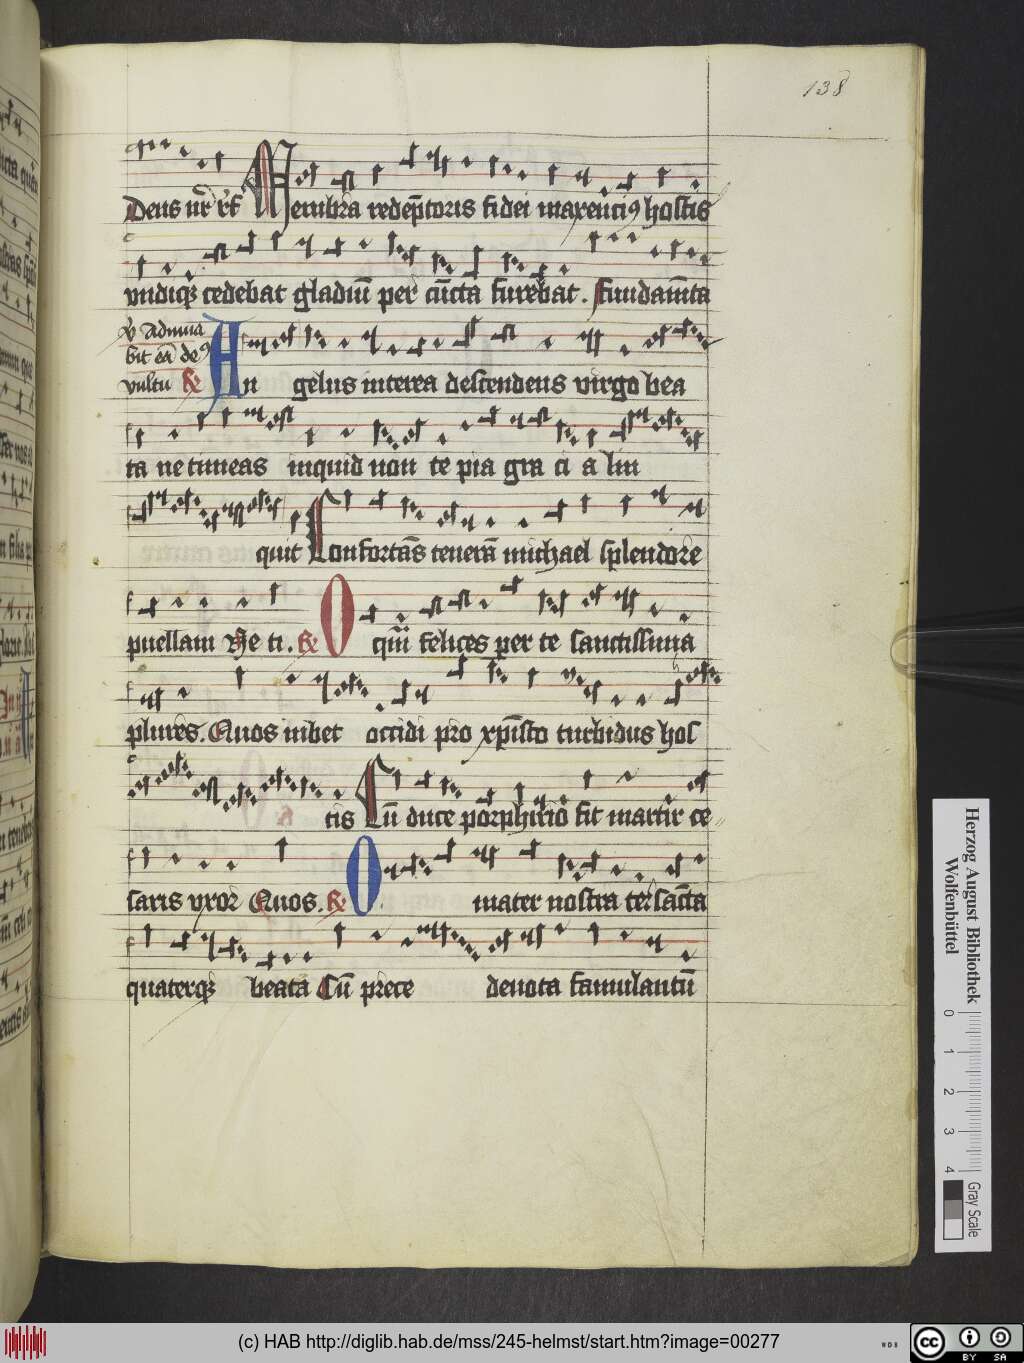 138
Deus nr̄ rf̄ Membra redēptoris fidei maxenciꝰ hostis
vndiqꝫ cedebat gladiū per cūcta furebat. fundam̄ta
ꝟ Adiuua
bit eā deꝰ
vultu ℟ An gelus interea descendens virgo bea
ta ne timeas inquid non te pia gra ci a lin
quit Confortās tenerā michael splendore
puellam Ne ti. ℟ O quā felices per te sanctissima
plures. Quos iubet occidi pro xp̄isto turbidus hos
tis Cū duce porphirio fit martir ce
saris vxor Quos. ℟ O mater nostra ter sācta
quaterqꝫ beata Cū prece deuota famulantū
Herzog August Bibliothek
Wolfenbüttel
0 1 2 3 4
Gray Scale
(c) HAB http://diglib.hab.de/mss/245-helmst/start.htm?image=00277
WDB
cc BY SA